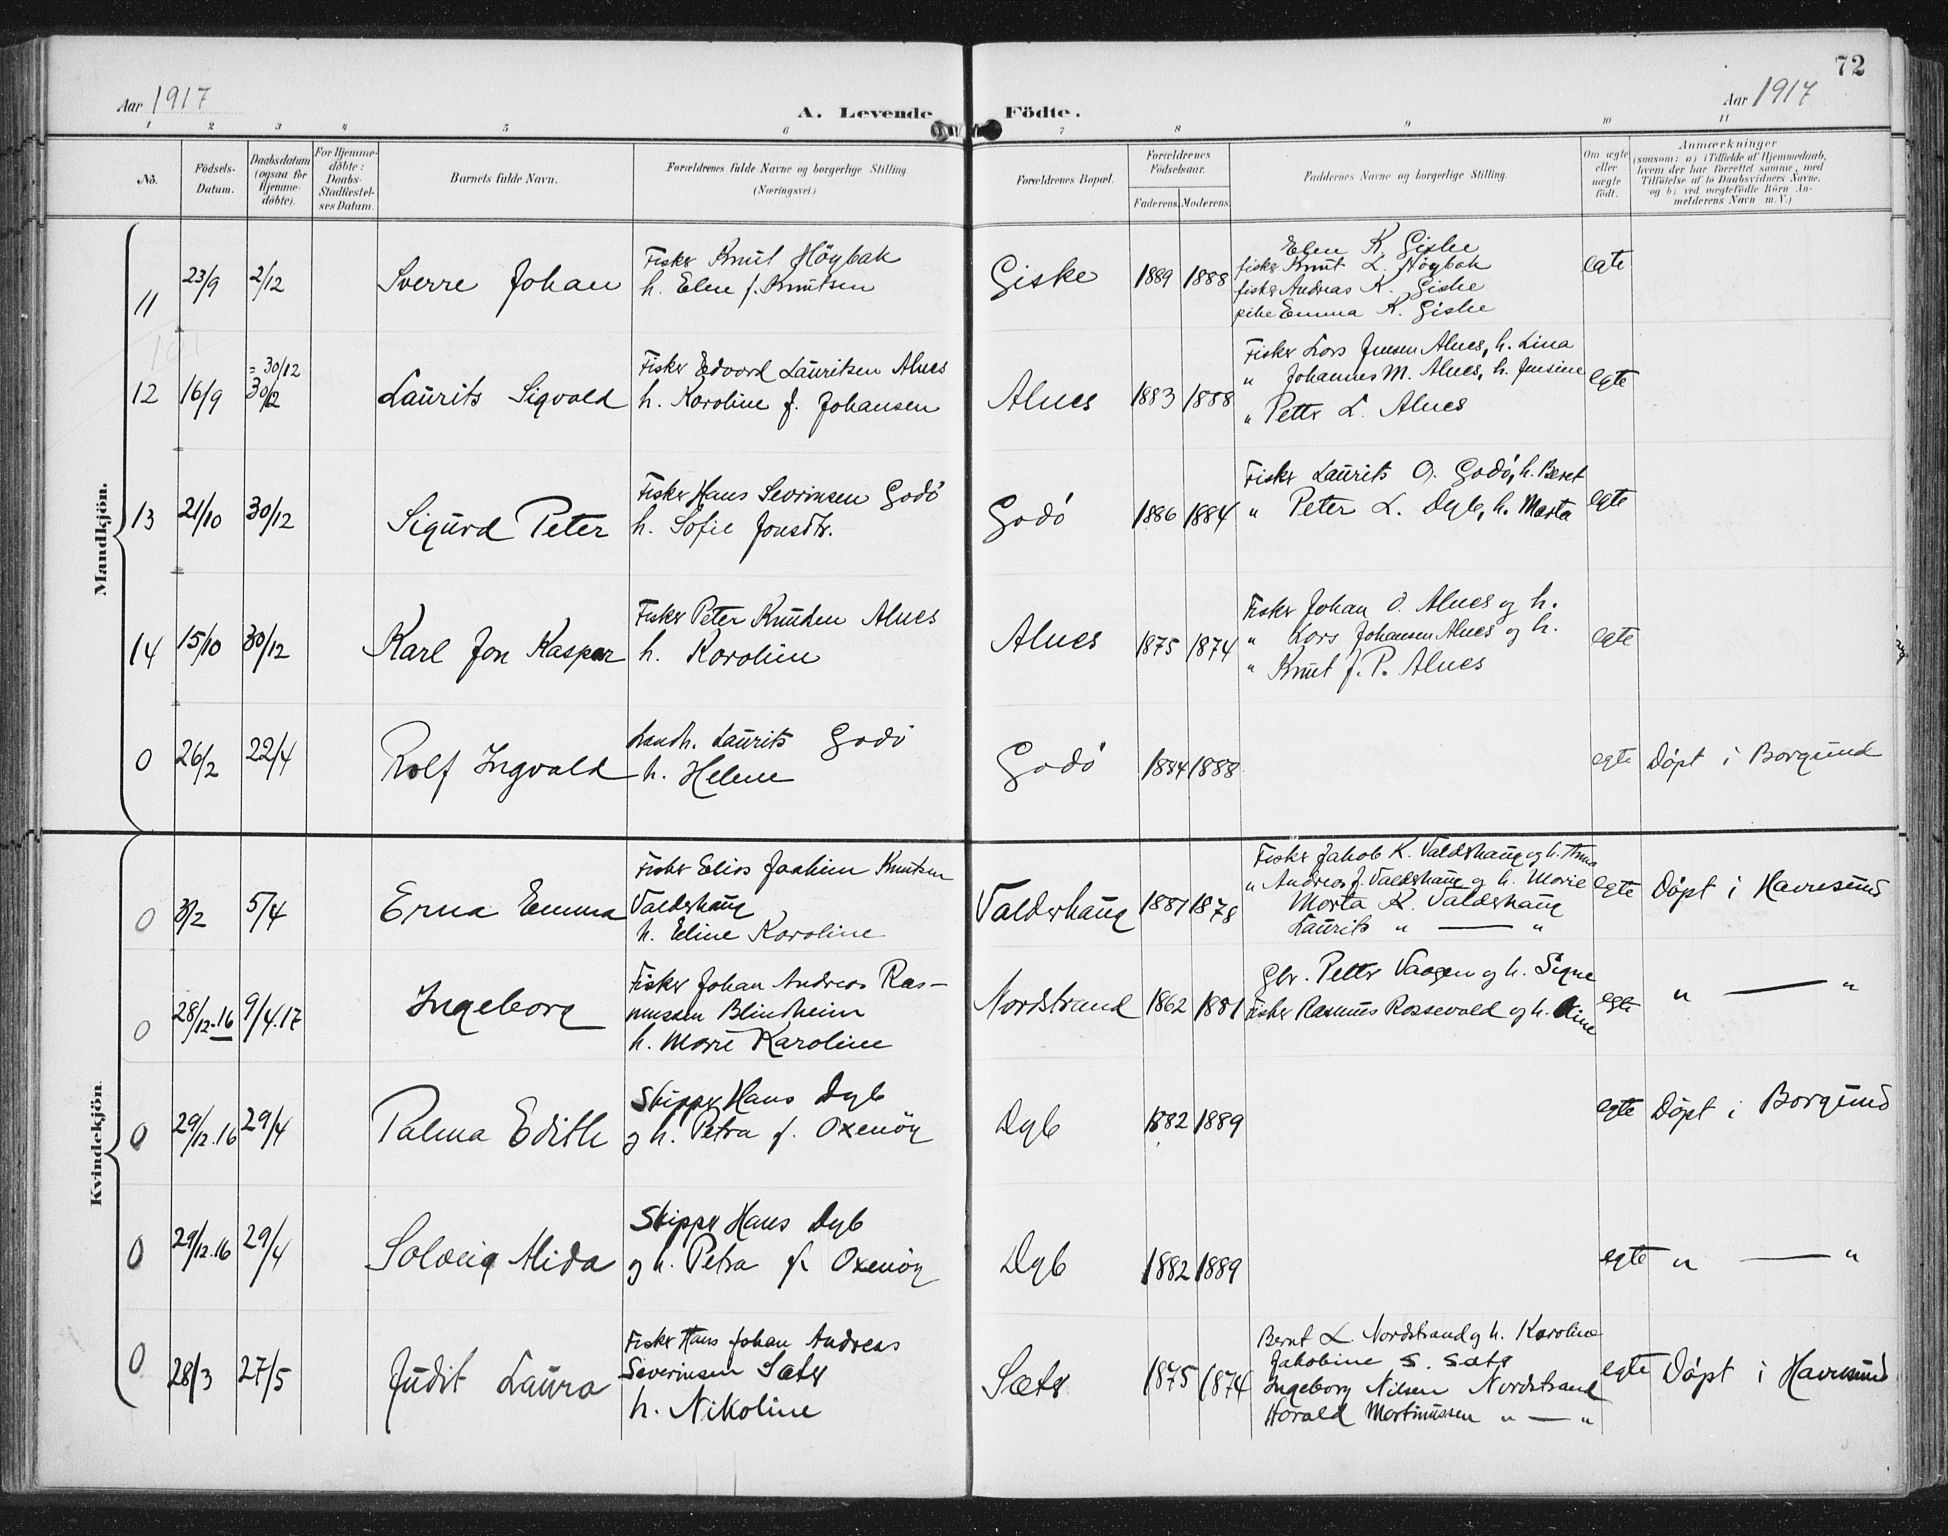 72
Aar 1917
A. Levende Födte.
Aar 1917
1 2 3 4 5 6 7 8 9 10 11
No.
Födsels-
Datum.
Daabsdatum
(ogsaa for
Hjemme-
döbte).
For Hjemme-
döbte:
Daabs-
Stadfæstel-
ses Datum.
Barnets fulde Navn.
Forældrenes fulde Navne og borgerlige Stilling.
(Næringsvei.)
Forældrenes Bopæl.
Forældrenes
Födselsaar.
Faderens. Moderens.
Faddernes Navne og borgerlige Stilling.
Om ægte
eller
uægte
födt.
Anmærkninger
(saasom: a) i Tilfælde af Hjemmedaab,
hvem der har forrettet samme, med
Tilföielse af to Daabsvidners Navne,
og b) ved uægtefödte Börn An-
melderens Navn m. V.)
Mandkjön.
11 23/9 2/12 Sverre Johan
Fisker Knut Höybak
h. Elen f. Knutsen
Giske 1889 1888
Elen K. Giske
fisker Knut L. Höybak
fisker Andreas K. Giske
pike Emma K. Giske
egte
12 16/9 30/12
= 30/12
Laurits Sigvald
Fisker Edvard Lauritsen Alnes
h. Karoline f. Johansen
Alnes 1883 1888
Fisker Lars Jensen Alnes, h. Lina
" Johannes M. Alnes, h. Jensine
" Petter L. Alnes
egte
13 21/10 30/12 Sigurd Peter
Fisker Hans Sevrinsen Godö
h. Sofie Jonsdtr.
Godö 1886 1884
Fisker Laurits O. Godö, h. Beret
" Peter L. Dyb, h. Marta
egte
14 15/10 30/12 Karl Jon Kasper
Fisker Peter Knudsen Alnes
h. Karoline
Alnes 1875 1874
Fisker Johan O. Alnes og h.
" Lars Johansen Alnes og h.
" Knut J. P. Alnes
egte
0 26/2 22/4 Rolf Ingvald
Landh. Laurits Godö
h. Helene
Godö 1884 1888
egte Döpt i Borgund
Kvindekjön.
0 3/2 5/4 Erna Emma
Fisker Elias Joakim Knutsen
Valderhaug
h. Eline Karoline
Valderhaug 1881 1878
Fisker Jakob K. Valderhaug og h. Anna
" Andreas J. Valderhaug og h. Marie
Marta K. Valderhaug
Laurits " — "
egte Döpt i Havnsund
0 28/12.16 9/4.17 Ingeborg
Fisker Johan Andreas Ras-
mussen Blindheim
h. Marie Karoline
Nordstrand 1862 1881
Gbr. Petter Vaagen og h. Signe
Fisker Rasmus Rossevold og h. Line
egte " — "
0 29/12.16 29/4 Palma Edith
Skipper Hans Dyb
og h. Petra f. Oxenöy
Dyb 1882 1889
egte Döpt i Borgund
0 29/12.16 29/4 Solveig Alida
Skipper Hans Dyb
og h. Petra f. Oxenöy
Dyb 1882 1889
egte " — "
0 28/3 27/5 Judit Laura
Fisker Hans Johan Andreas
Severinsen Sæter
h. Nikoline
Sæter 1875 1874
Bernt L. Nordstrand og h. Karoline
Jakobine S. Sæter
Ingeborg Nilsen Nordstrand
Harald Martinussen " — "
egte Döpt i Havnsund